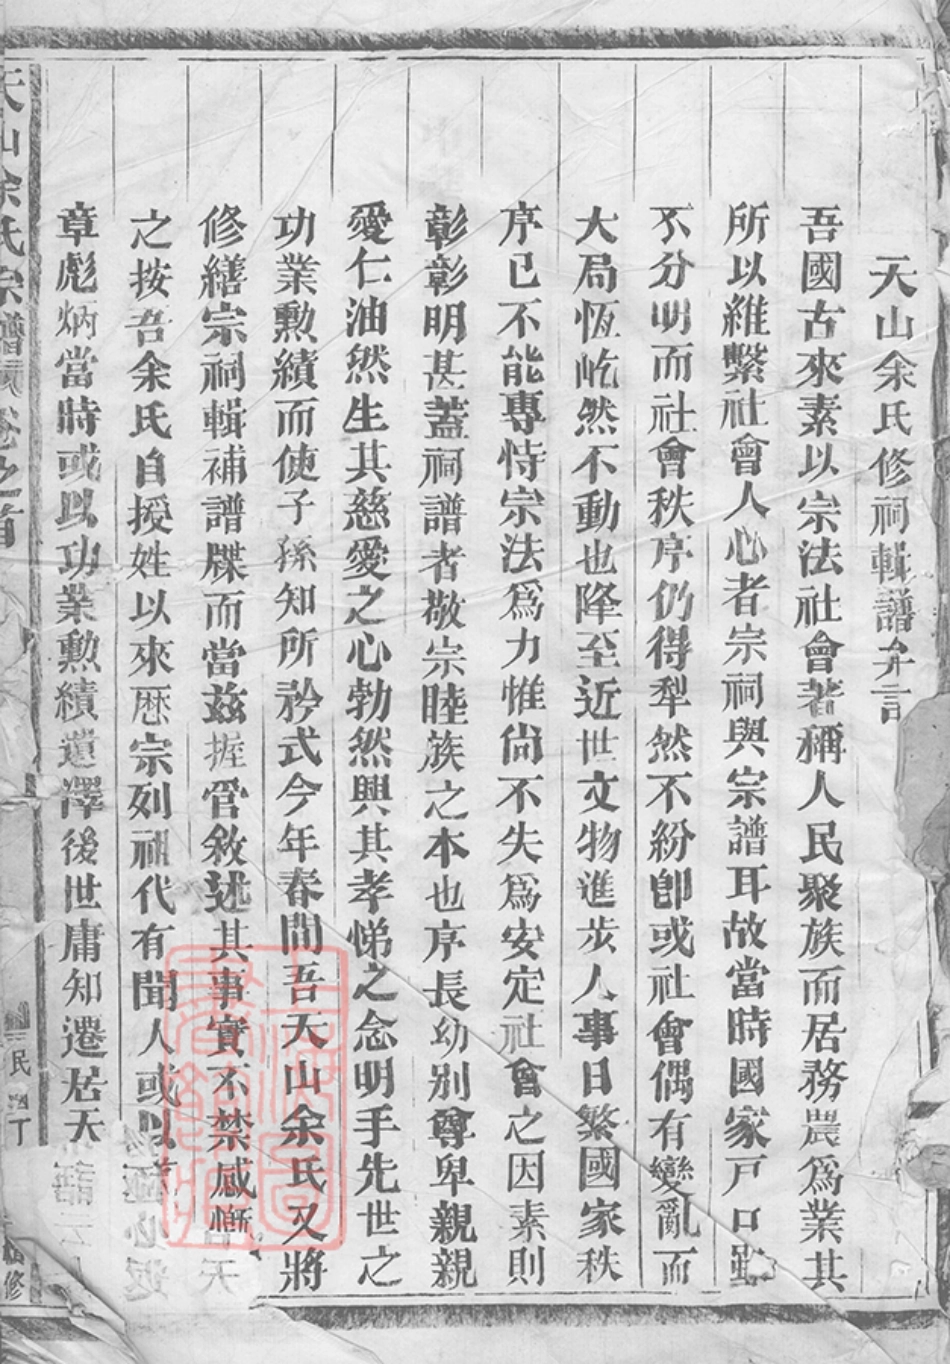 天山余氏修祠輯譜弁言
吾國古來素以宗法社會著稱人民聚族而居務農爲業其
所以維繫社會人心者宗祠與宗譜耳故當時國家戸口雖
不分明而社會秩序仍得犁然不紛卽或社會偶有變亂而
大局恆屹然不動也降至近世文物進步人事日繁國家秩
序已不能專恃宗法爲力惟尙不失爲安定社會之因素則
彰彰明甚蓋祠譜者敬宗睦族之本也序長幼别尊卑親親
愛仁油然生其慈愛之心勃然興其孝悌之念明手先世之
功業勲績而使子孫知所矜式今年春間吾天山余氏又將
修繕宗祠輯補譜牒而當兹握管敘述其事實不禁感慨
之按吾余氏自授姓以來歷宗列祖代有聞人或以
章彪炳當時或以功業勲績遺澤後世庸知遷居天
天山余氏宗譜 卷之首
民
丁
修